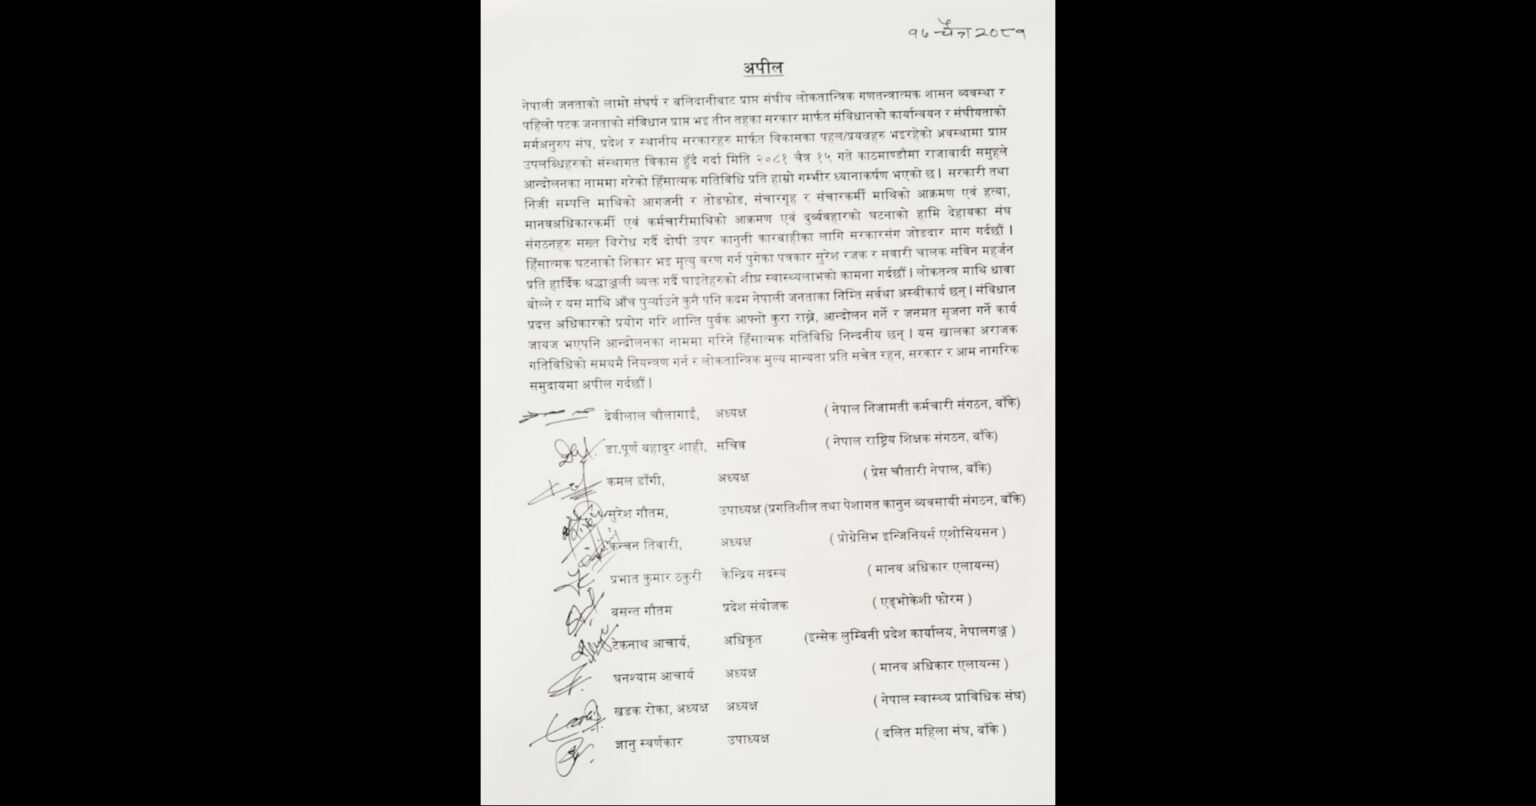 १७ चैत्र २०८१
अपील
नेपाली जनताको लामो संघर्ष र बलिदानीबाट प्राप्त संघीय लोकतान्त्रिक गणतन्त्रात्मक शासन व्यवस्था र
पहिलो पटक जनताको संविधान प्राप्त भइ तीन तहका सरकार मार्फत संविधानको कार्यान्वयन र संघीयताको
मर्मअनुरुप संघ, प्रदेश र स्थानीय सरकारहरु मार्फत विकासका पहल/प्रयत्नहरु भइरहेको अवस्थामा प्राप्त
उपलब्धिहरुको संस्थागत विकास हुँदै गर्दा मिति २०८१ चैत्र १५ गते काठमाण्डौमा राजावादी समुहले
आन्दोलनका नाममा गरेको हिंसात्मक गतिविधि प्रति हाम्रो गम्भीर ध्यानाकर्षण भएको छ। सरकारी तथा
निजी सम्पत्ति माथिको आगजनी र तोडफोड, संचारगृह र संचारकर्मी माथिको आक्रमण एवं हत्या,
मानवअधिकारकर्मी एवं कर्मचारीमाथिको आक्रमण एवं दुर्व्यवहारको घटनाको हामि देहायका संघ
संगठनहरु सख्त बिरोध गर्दै दोषी उपर कानुनी कारबाहीका लागि सरकारसंग जोडदार माग गर्दछौं।
हिंसात्मक घटनाको शिकार भइ मृत्यु वरण गर्न पुगेका पत्रकार सुरेश रजक र सवारी चालक सविन महर्जन
प्रति हार्दिक श्रद्धाञ्जली ब्यक्त गर्दै घाइतेहरुको शीघ्र स्वास्थ्यलाभको कामना गर्दछौं। लोकतन्त्र माथि धावा
बोल्ने र यस माथि आँच पुर्‍याउने कुनै पनि कदम नेपाली जनताका निम्ति सर्वथा अस्वीकार्य छन्। संविधान
प्रदत्त अधिकारको प्रयोग गरि शान्ति पुर्वक आफ्नो कुरा राख्ने, आन्दोलन गर्ने र जनमत सृजना गर्ने कार्य
जायज भएपनि आन्दोलनका नाममा गरिने हिंसात्मक गतिविधि निन्दनीय छन्। यस खालका अराजक
गतिविधिको समयमै नियन्त्रण गर्न र लोकतान्त्रिक मुल्य मान्यता प्रति सचेत रहन, सरकार र आम नागरिक
समुदायमा अपील गर्दछौं।
देवीलाल चौलागाई, अध्यक्ष ( नेपाल निजामती कर्मचारी संगठन, बाँके)
डा.पूर्ण बहादुर शाही, सचिव ( नेपाल राष्ट्रिय शिक्षक संगठन, बाँके)
कमल डाँगी, अध्यक्ष ( प्रेस चौतारी नेपाल, बाँके)
सुरेश गौतम, उपाध्यक्ष (प्रगतिशील तथा पेशागत कानुन ब्यवसायी संगठन, बाँके)
कन्चन तिवारी, अध्यक्ष ( प्रोग्रेसिभ इन्जिनियर्स एशोसियसन )
प्रभात कुमार ठकुरी केन्द्रिय सदस्य ( मानव अधिकार एलायन्स)
बसन्त गौतम प्रदेश संयोजक ( एड्भोकेशी फोरम )
टेकनाथ आचार्य, अधिकृत (इन्सेक लुम्बिनी प्रदेश कार्यालय, नेपालगञ्ज )
घनश्याम आचार्य अध्यक्ष ( मानव अधिकार एलायन्स )
खडक रोका, अध्यक्ष अध्यक्ष ( नेपाल स्वास्थ्य प्राविधिक संघ)
ज्ञानु स्वर्णकार उपाध्यक्ष ( दलित महिला संघ, बाँके )